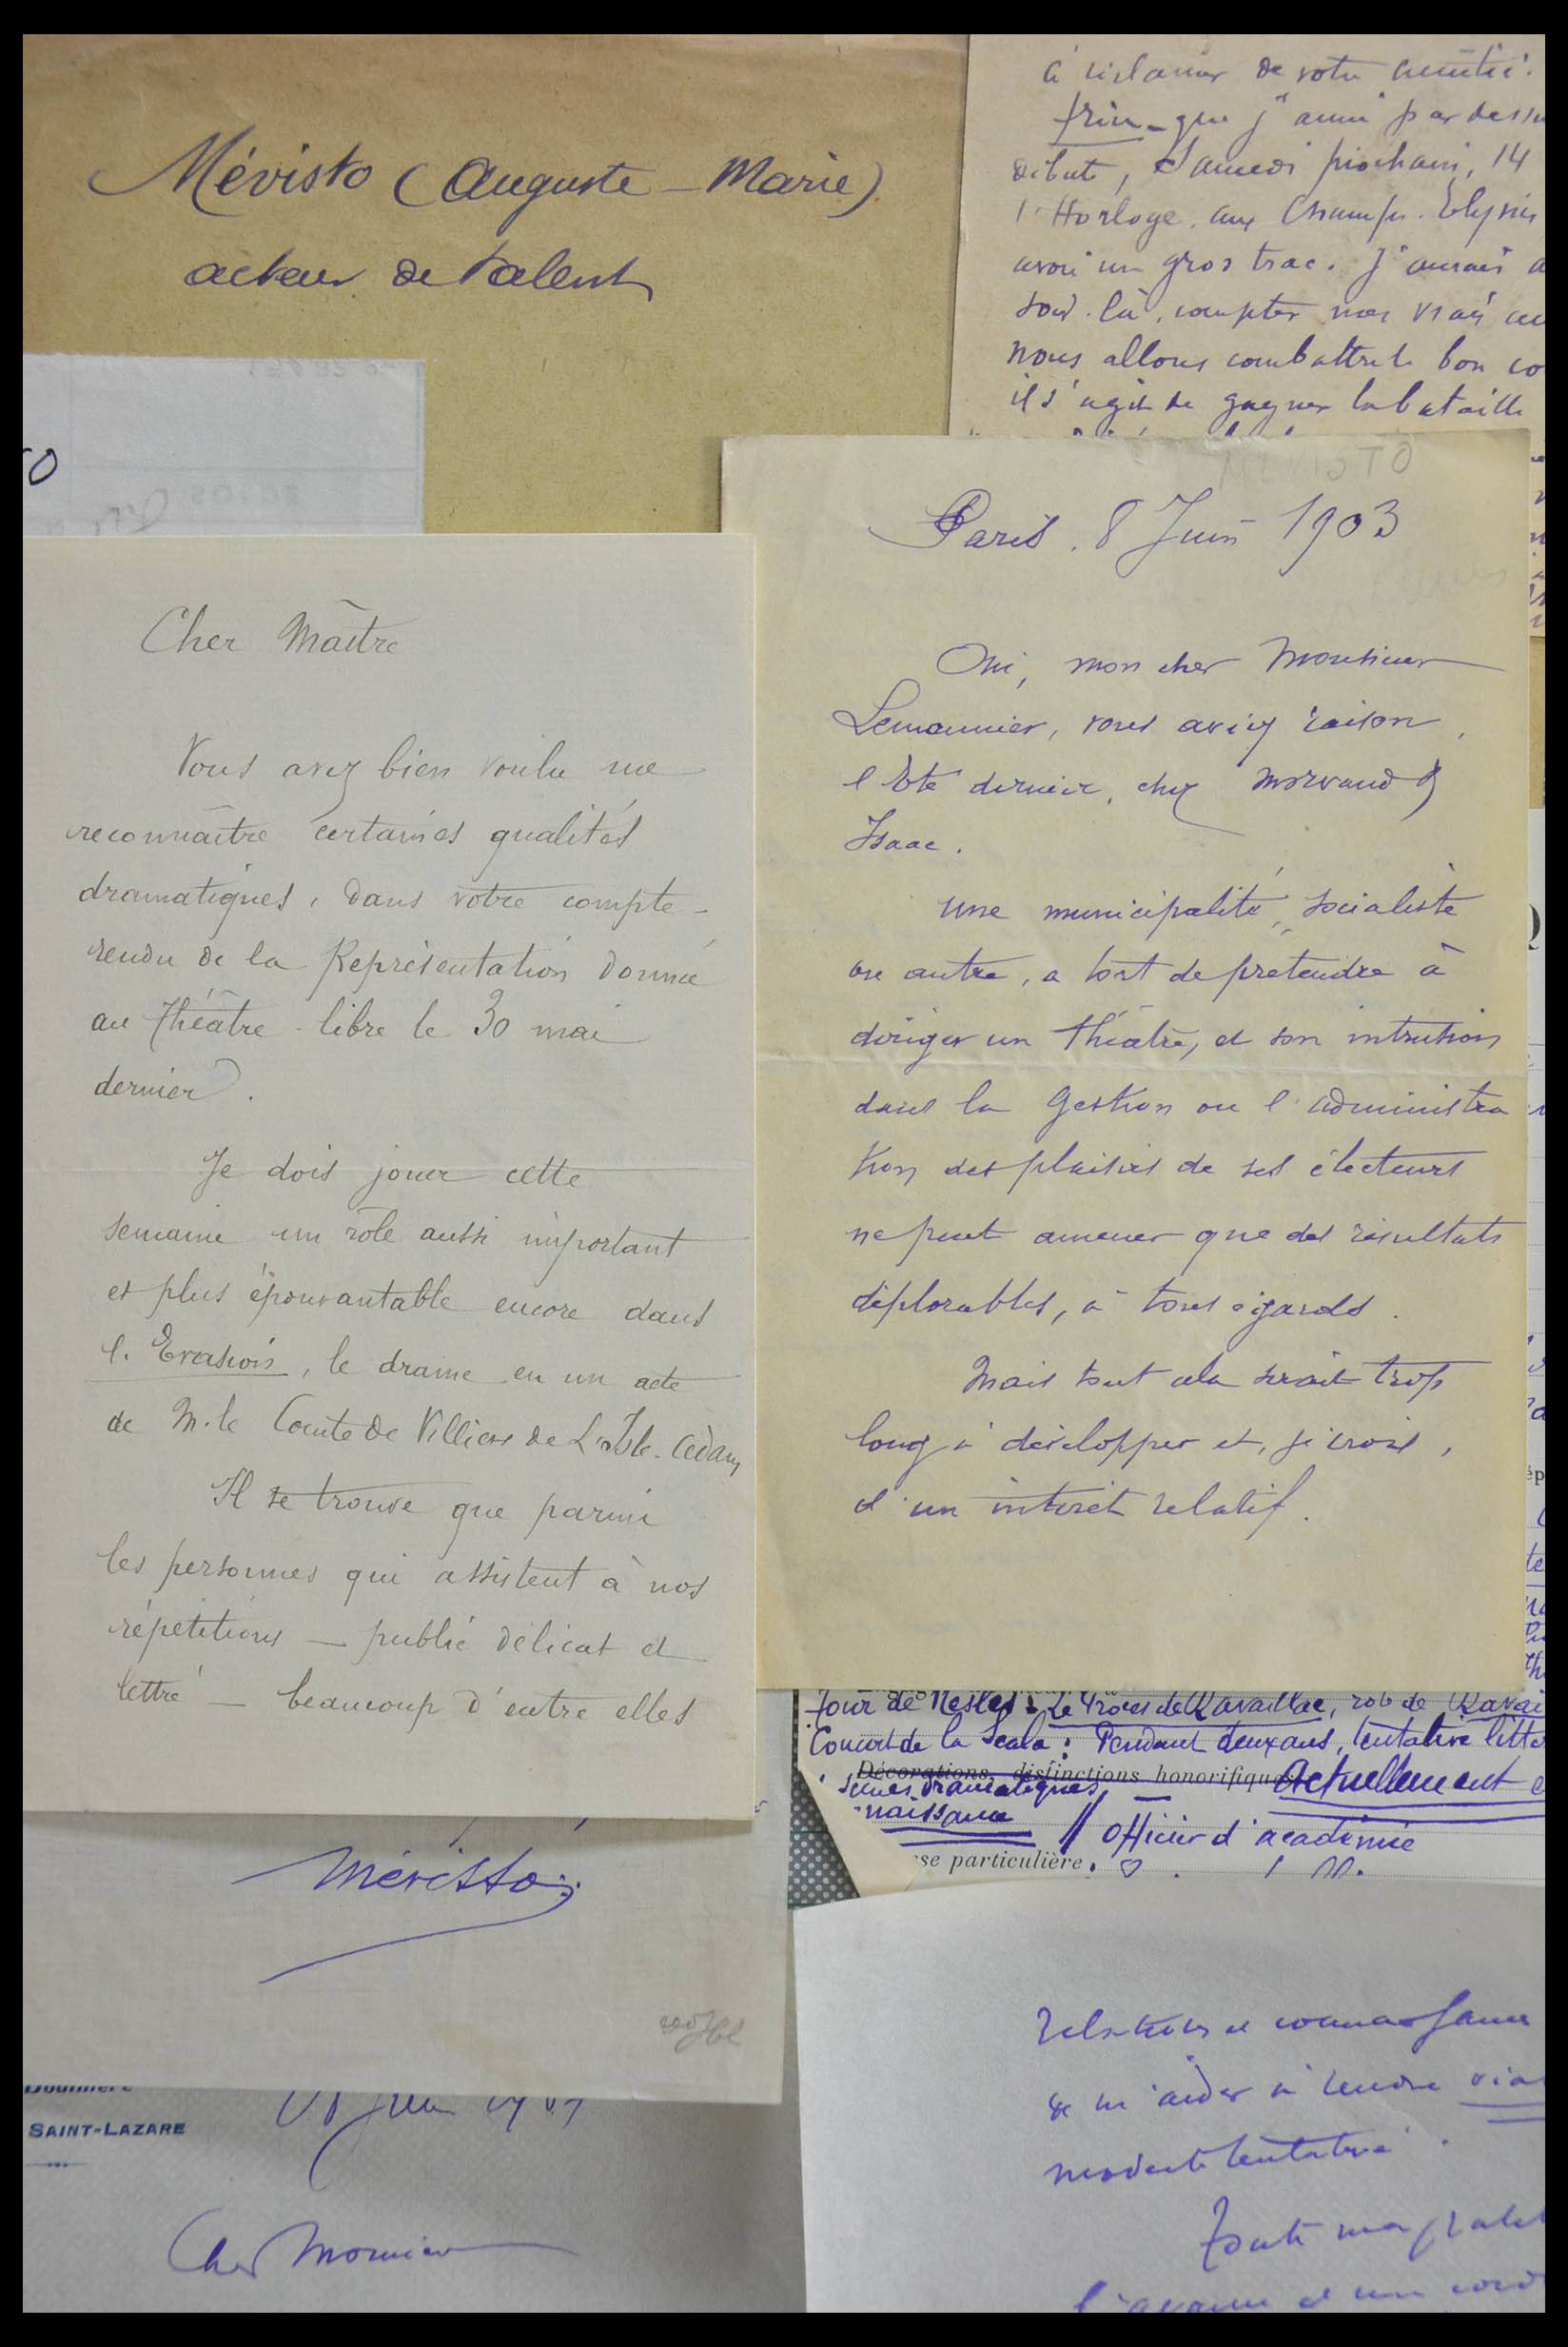 Mévisto (Auguste-Marie)
acteur de talent
à réclamer de votre amitié.
que j'aime par dessu
débute, Samedi prochain, 14
l'Horloge, aux Champs. Elysées
avoir un gros trac. J'aurais a
soir-là, compter mes vrais
nous allons combattre le bon co
il s'agit de gagner la bataille
Paris. 8 Juin 1903
Oui, mon cher Monsieur
Lemonnier, vous aviez raison,
l'Eté dernier, chez Morvand &
Isaac.
Une municipalité, socialiste
ou autre, a tort de prétendre à
diriger un théâtre, et son intrusion
dans la gestion ou l'administra
tion des plaisirs de ses électeurs
ne peut amener que des résultats
déplorables, à tous égards.
Mais tout cela serait trop
long à développer et, je crois,
d'un intérêt relatif.
Cher Maître
Vous avez bien voulu me
reconnaître certaines qualités
dramatiques, dans votre compte-
rendu de la Représentation donnée
au Théâtre-libre le 30 mai
dernier.
Je dois jouer cette
semaine un rôle aussi important
et plus épouvantable encore dans
l'Evasion, le drame en un acte
de M. le Comte de Villiers de L'Isle-Adam
Il se trouve que parmi
les personnes qui assistent à nos
répétitions — public délicat et
lettré — beaucoup d'entre elles
Mévisto
Tour de Nesle : Le Procès de Ravaillac, role de Ravai
Concert de la Scala : Pendant deux ans, tentative litté
Décorations, distinctions honorifiques Actuellement
scènes dramatiques
naissance // Officier d'académie
sse particulière.
SAINT-LAZARE
Cher Monsieur
relations et connaissances
de m'aider à rendre
modeste tentative.
Toute ma